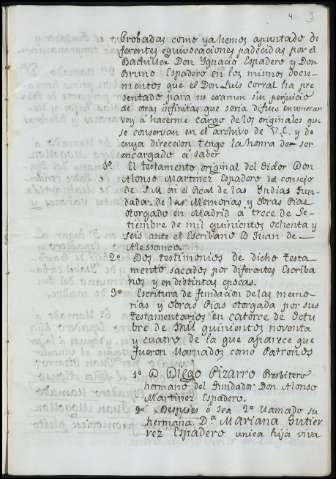 4 3
Probadas como ya hemos apuntado di
ferentes equivocaciones padecidas por el
Bachiller Don Ignacio Espadero y Don
Bruno Espadero en los mismos docu-
mentos que el Don Luis Corral ha pre
sentado para su examen sin perjuicio
de otras infinitas que seria dificil enumerar
voy á hacerme cargo de los originales que
se conservan en el archivo de V.E. y de
cuya direccion tengo la honra de ser
encargado á saber
El testamento original del Oidor Don
Alonso Martinez Espadero de consejo
de S.M. en el Real de las Indias Fun
dador de las Memorias y obras Pias
otorgado en Madrid á trece de Se-
tiembre de mil quinientos ochenta y
seis ante el Escribano D. Juan de
2º Dos testimonios de dicho testa
mento sacados por diferentes Escriba
nos y en distintas epocas.
3º Escritura de fundacion de las memo
rias y Obras Pias otorgada por sus
testamentarios en catorce de Octu
bre de Mil quinientos noventa
y cuatro de la que aparece que
fueron llamados como Patronos
1º D. Diego Pizarro Presbitero
hermano del Fundador Don Alonso
Martinez Espadero.
2º Despues ó sea 2º llamado su
hermana Dª Mariana Gutier
rez Espadero unica hija viva